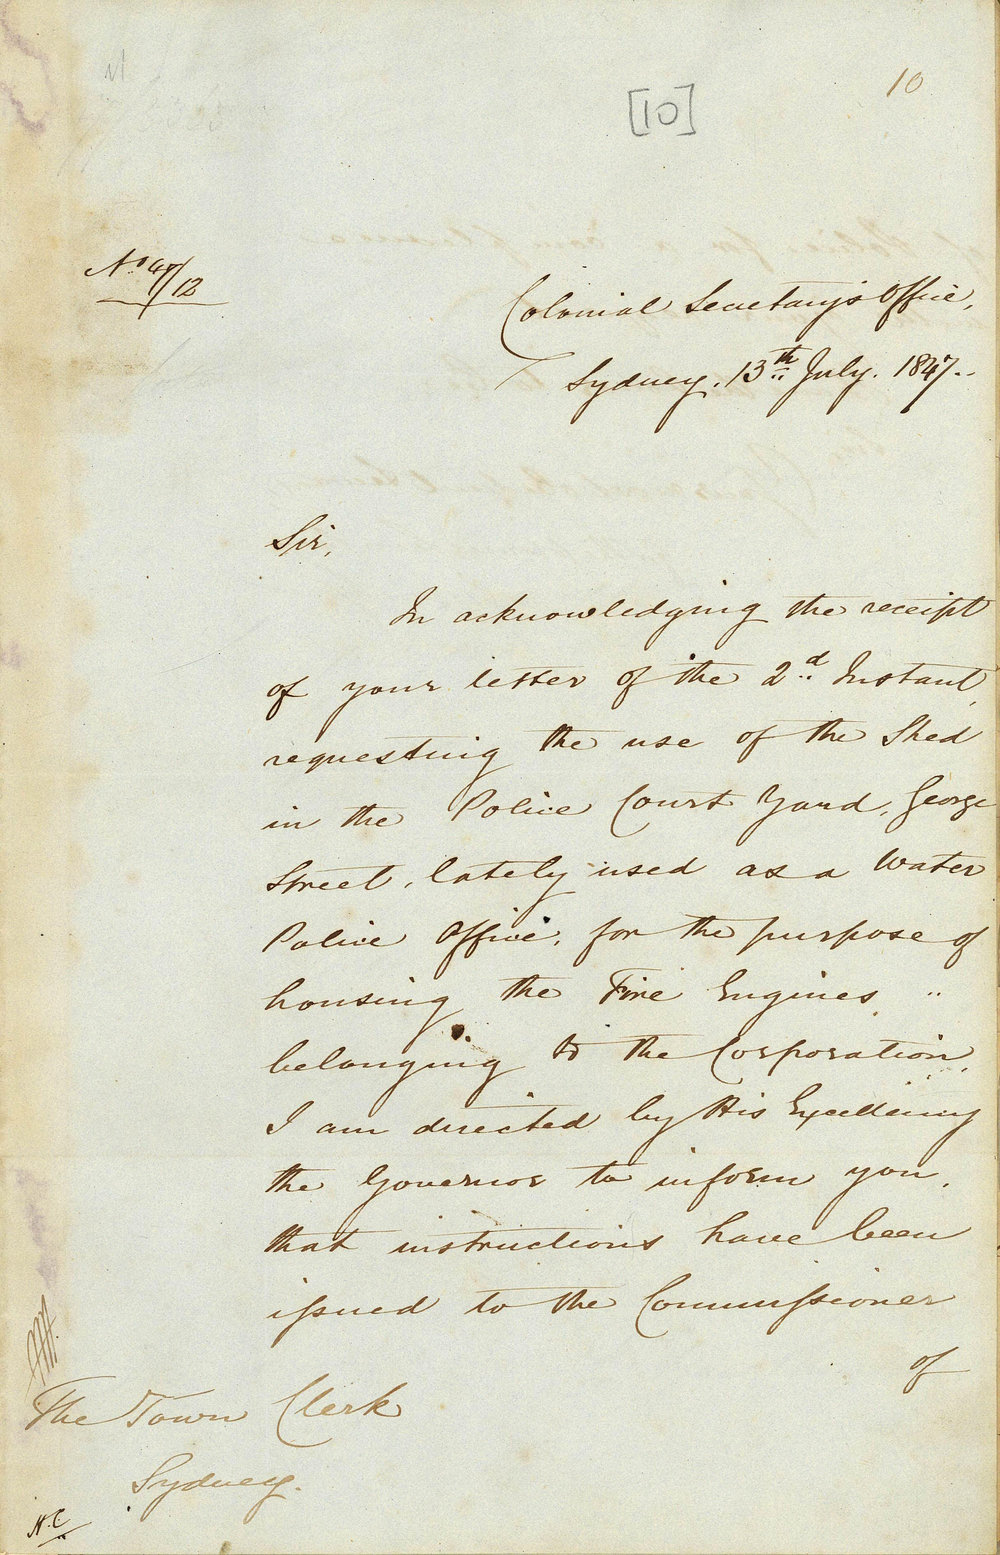 10
[10]
No 47/12
Colonial Secretary's Office,
Sydney. 13th July. 1847.
Sir,
In acknowledging the receipt
of your letter of the 2d Instant,
requesting the use of the Shed
in the Police Court Yard, George
Street, lately used as a Water
Police Office, for the purpose of
housing the Fire Engines
belonging to the Corporation,
I am directed by His Excellency
the Governor to inform you,
that instructions have been
issued to the Commissioner
of
The Town Clerk
Sydney.